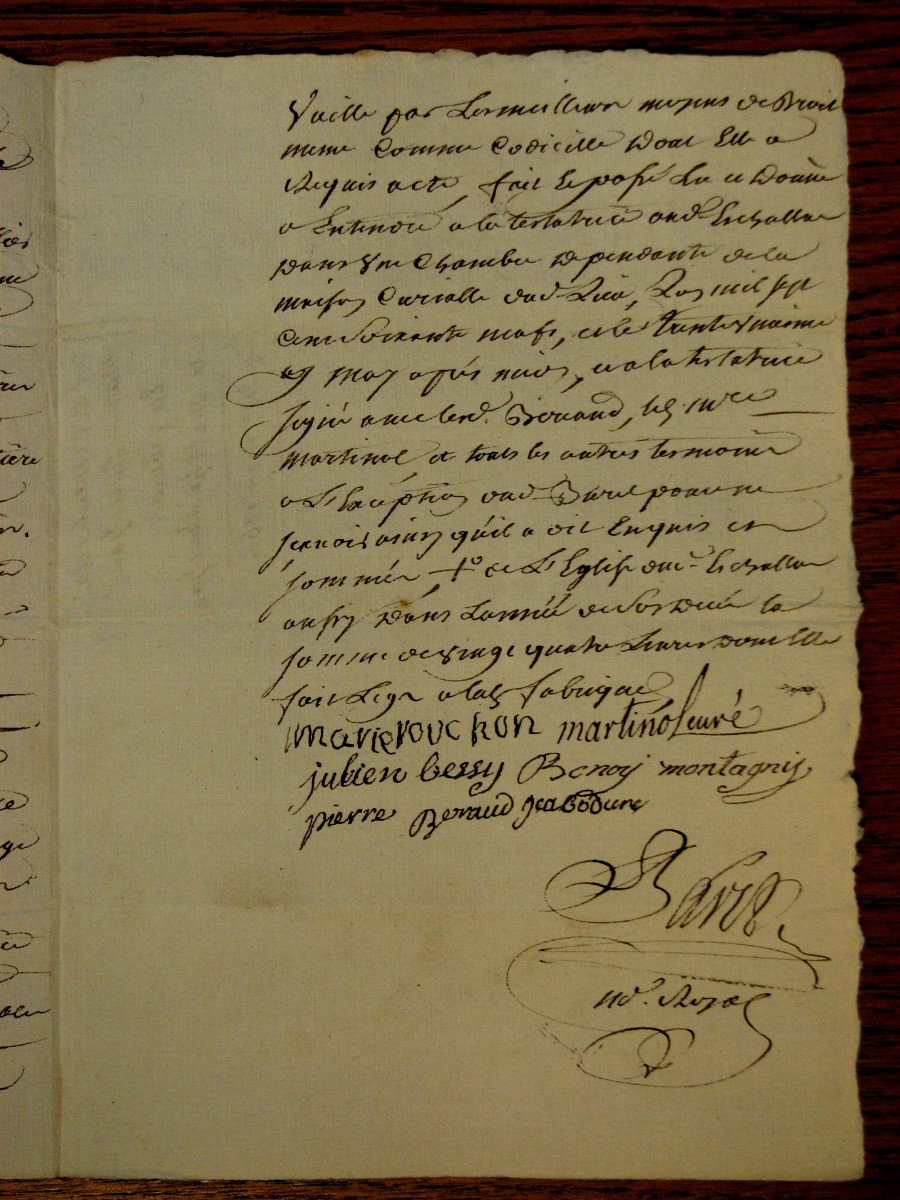 Vaille par Les meilleurs moyens de Droit
meme Comme Codicille Dont Elle a
Requis acte, fait Le posé Lu et Donné
a Entendre a la testatrice aud. Eschallas
Dans Vne Chambre Dependante de la
maison Curialle dud. Lieu, L'an mil sept
Cent Soixante neuf, et le trente Vnieme
may après midi, et a la testatrice
signé avec led. Beraud, led. mre
martinol et tous les autres temoins
a L'Exception dud. pour ne
scavoir ainsy qu'il a dit Enquis et
sommés, de L'Eglise dud. Eschallas
Dans L'année de Son Decés la
somme de Vingt quatre Livres Dont Elle
fait Legs a lad. fabrique
marie rouchon martinol curé
julien bessy Benoy montagny
pierre Beraud
Not. Royal